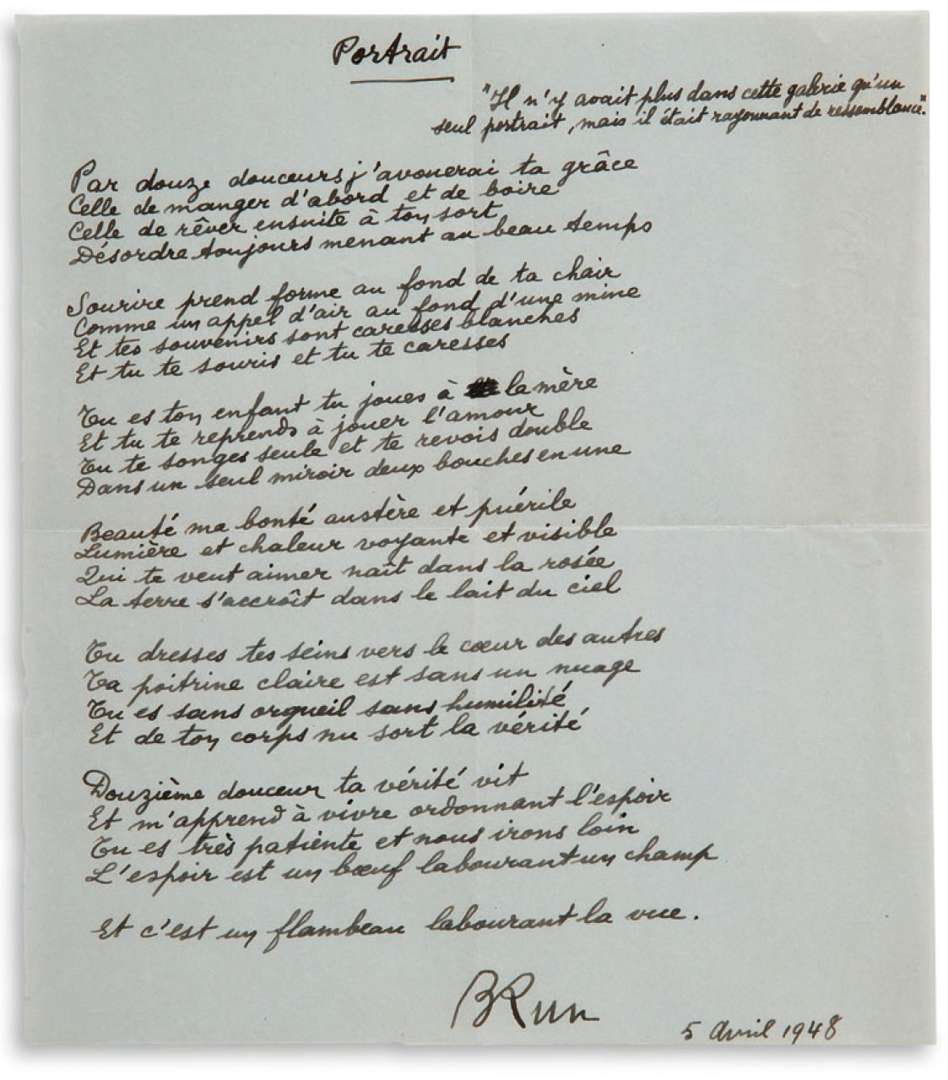 Portrait
"Il n'y avait plus dans cette galerie qu'un
seul portrait, mais il était rayonnant de ressemblance."
Par douze douceurs j'avouerai ta grâce
Celle de manger d'abord et de boire
Celle de rêver ensuite à ton sort
Désordre toujours menant au beau temps
Sourire prend forme au fond de ta chair
Comme un appel d'air au fond d'une mine
Et tes souvenirs sont caresses blanches
Et tu te souris et tu te caresses
Tu es ton enfant tu joues à la mère
Et tu te reprends à jouer l'amour
Tu te songes seule et te revois double
Dans un seul miroir deux bouches en une
Beauté ma bonté austère et puérile
Lumière et chaleur voyante et visible
Qui te veut aimer naît dans la rosée
La terre s'accroît dans le lait du ciel
Tu dresses tes seins vers le cœur des autres
Ta poitrine claire est sans un nuage
Tu es sans orgueil sans humilité
Et de ton corps nu sort la vérité
Douzième douceur ta vérité vit
Et m'apprend à vivre ordonnant l'espoir
Tu es très patiente et nous irons loin
L'espoir est un bœuf labourant un champ
Et c'est un flambeau labourant la vue.
5 avril 1948